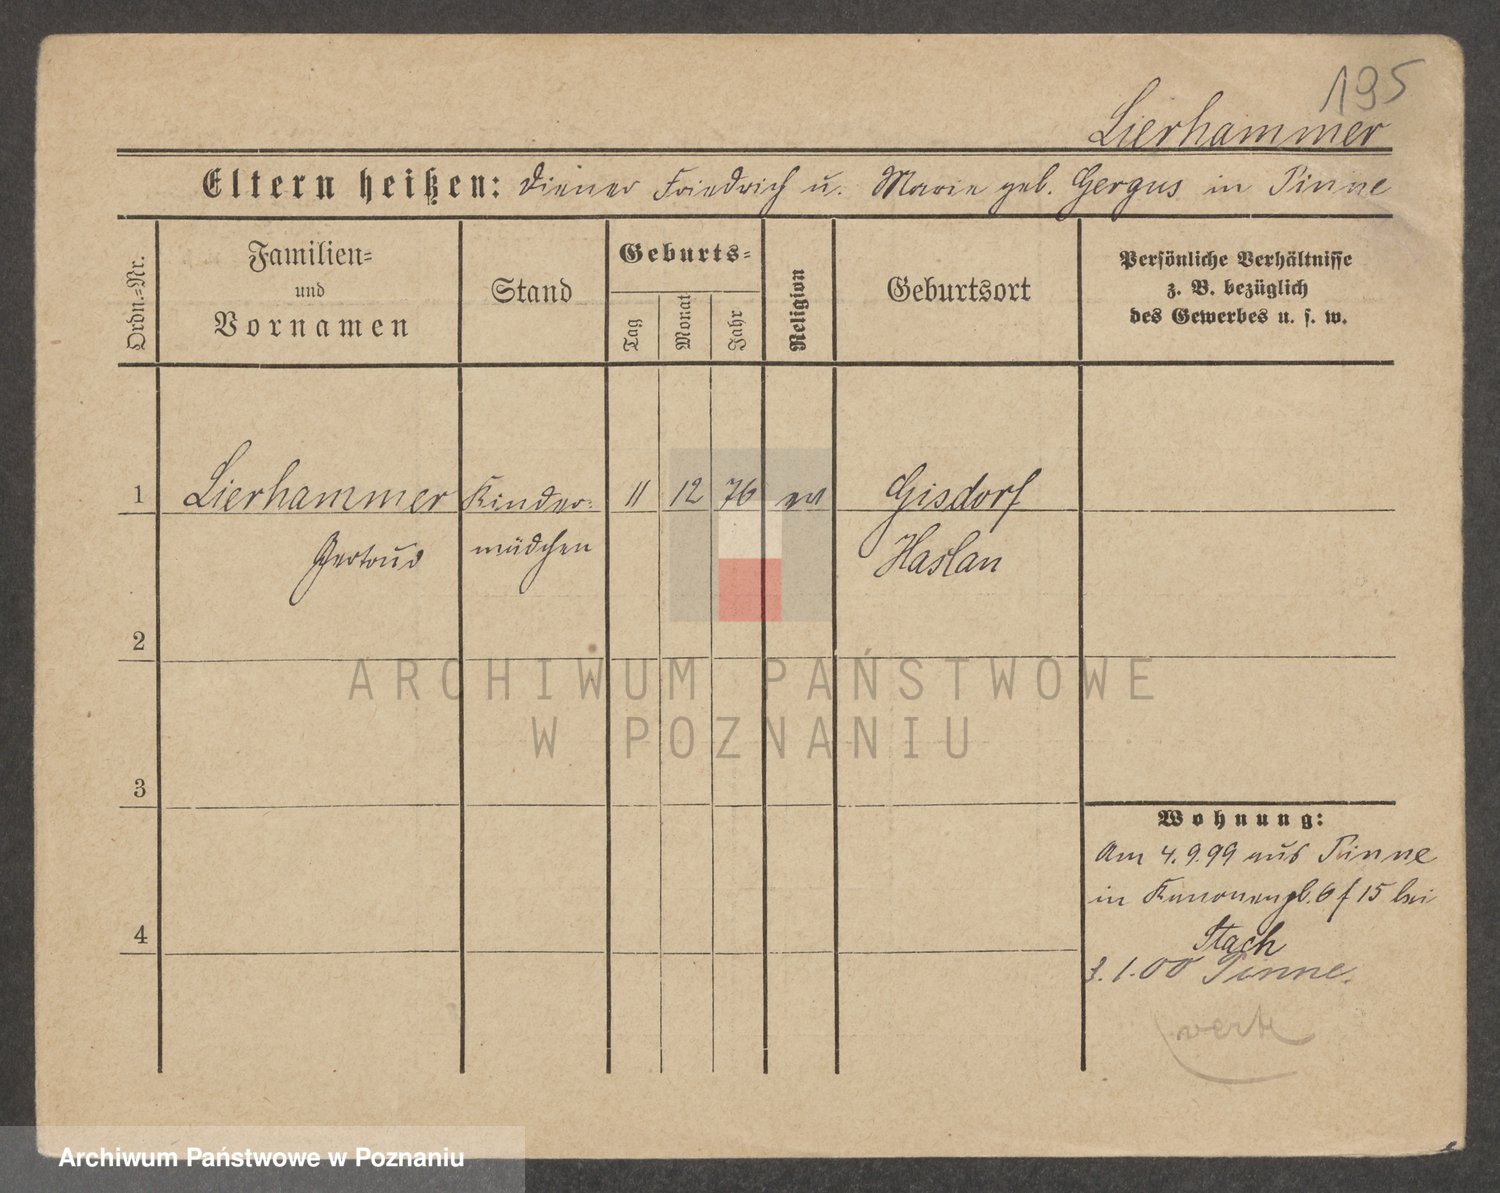 195
Lierhammer
Eltern heißen: Diener Friedrich u. Marie geb. Gergus in Pinne
Ordn.-Nr.
Familien-
und
Vornamen
Stand
Geburts-
Tag
Monat
Jahr
Religion
Geburtsort
Persönliche Verhältnisse
z. B. bezüglich
des Gewerbes u. s. w.
1 Lierhammer Kinder- 11 12 76 ev Gisdorf
Gertrud mädchen Haslan
2
3
4
Wohnung:
Am 4.9.99 aus Pinne
in Kanonenpl. 6 f 15 bei
Stach
3.1.00 Pinne.
verte
ARCHIWUM PAŃSTWOWE
W POZNANIU
Archiwum Państwowe w Poznaniu